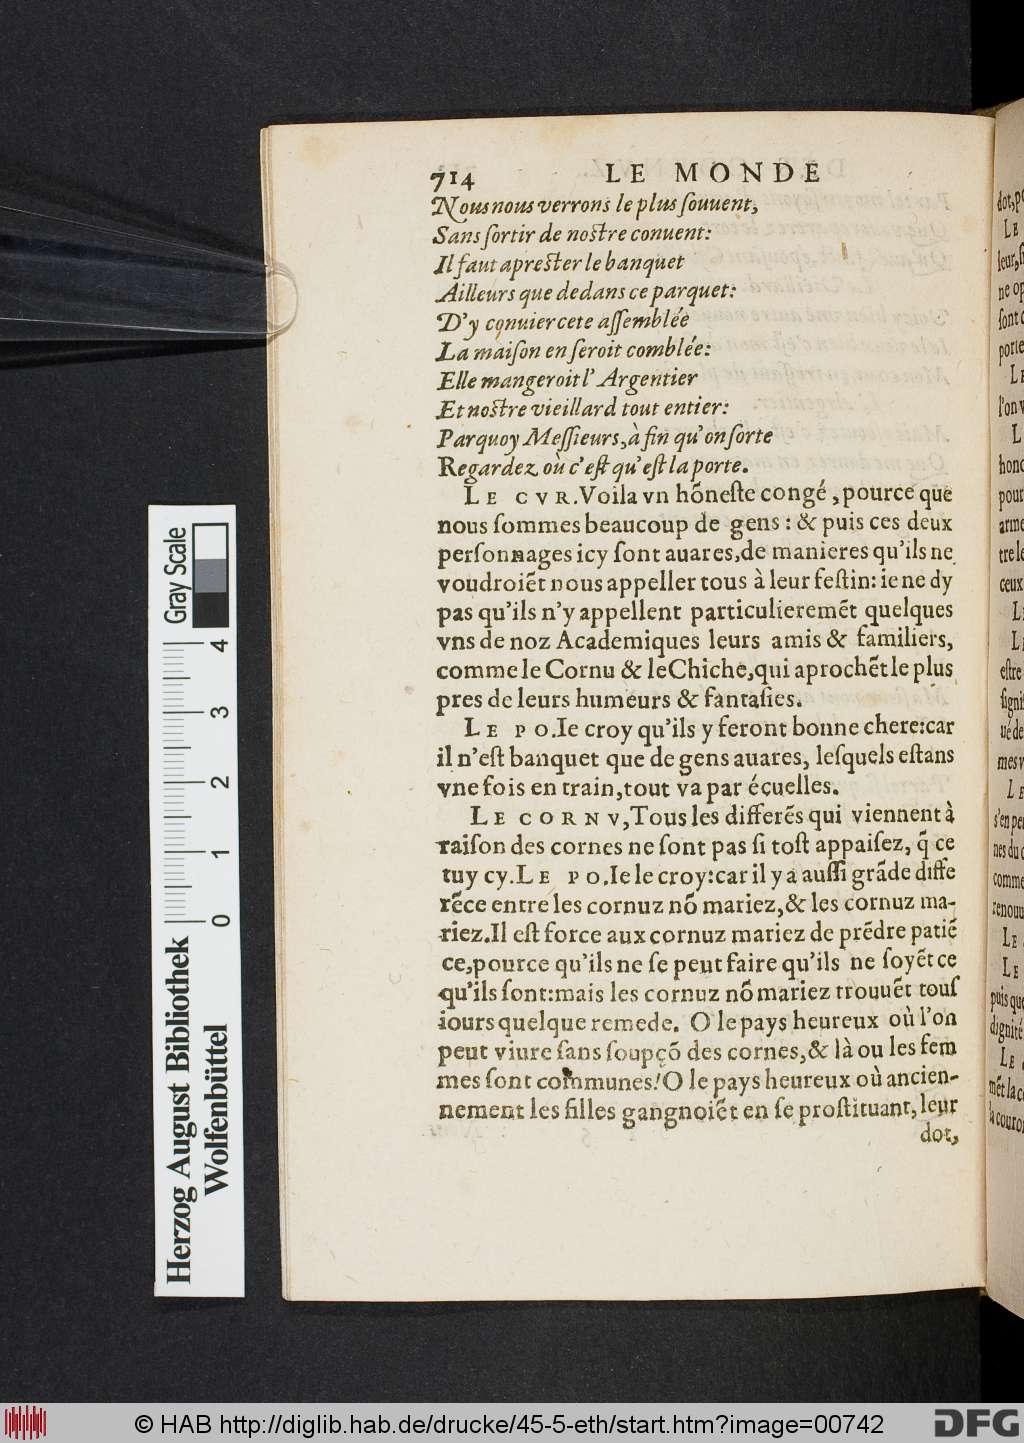 714 LE MONDE
Nous nous verrons le plus ſouuent,
Sans ſortir de noſtre conuent:
Il faut apreſter le banquet
Ailleurs que dedans ce parquet:
D'y conuier cete aſſemblée
La maiſon en ſeroit comblée:
Elle mangeroit l'Argentier
Et noſtre vieillard tout entier:
Parquoy Meſſieurs, à fin qu'on ſorte
Regardez où c'eſt qu'eſt la porte.
LE CVR. Voila vn hõneſte congé, pource que
nous ſommes beaucoup de gens: & puis ces deux
perſonnages icy ſont auares, de manieres qu'ils ne
voudroiẽt nous appeller tous à leur feſtin: ie ne dy
pas qu'ils n'y appellent particulieremẽt quelques
vns de noz Academiques leurs amis & familiers,
comme le Cornu & le Chiche, qui aprochẽt le plus
pres de leurs humeurs & fantaſies.
LE PO. Ie croy qu'ils y feront bonne chere: car
il n'eſt banquet que de gens auares, leſquels eſtans
vne fois en train, tout va par écuelles.
LE CORNV, Tous les differẽs qui viennent à
raiſon des cornes ne ſont pas ſi toſt appaiſez, q̃ ce
tuy cy. LE PO. Ie le croy: car il y a auſſi grãde diffe
rẽce entre les cornuz nõ mariez, & les cornuz ma-
riez. Il eſt force aux cornuz mariez de prẽdre patiẽ
ce, pource qu'ils ne ſe peut faire qu'ils ne ſoyẽt ce
qu'ils ſont: mais les cornuz nõ mariez trouuẽt touſ
iours quelque remede. O le pays heureux où l'on
peut viure ſans ſoupçõ des cornes, & là ou les fem
mes ſont communes! O le pays heureux où ancien-
nement les filles gangnoiẽt en ſe proſtituant, leur
dot,
dot, p
LE
leur, ſ
ne op
ſont
porte
LE
l'on v
L
hono
pour
arme
tre le
ceux
L
L
eſtre
ſigni
ue de
mes v
LE
s'en pe
nes du
comme
renouu
LE
LE
puis que
dignité
LE
mẽt la c
la couro
Gray Scale
4 3 2 1 0
Herzog August Bibliothek
Wolfenbüttel
© HAB http://diglib.hab.de/drucke/45-5-eth/start.htm?image=00742
DFG